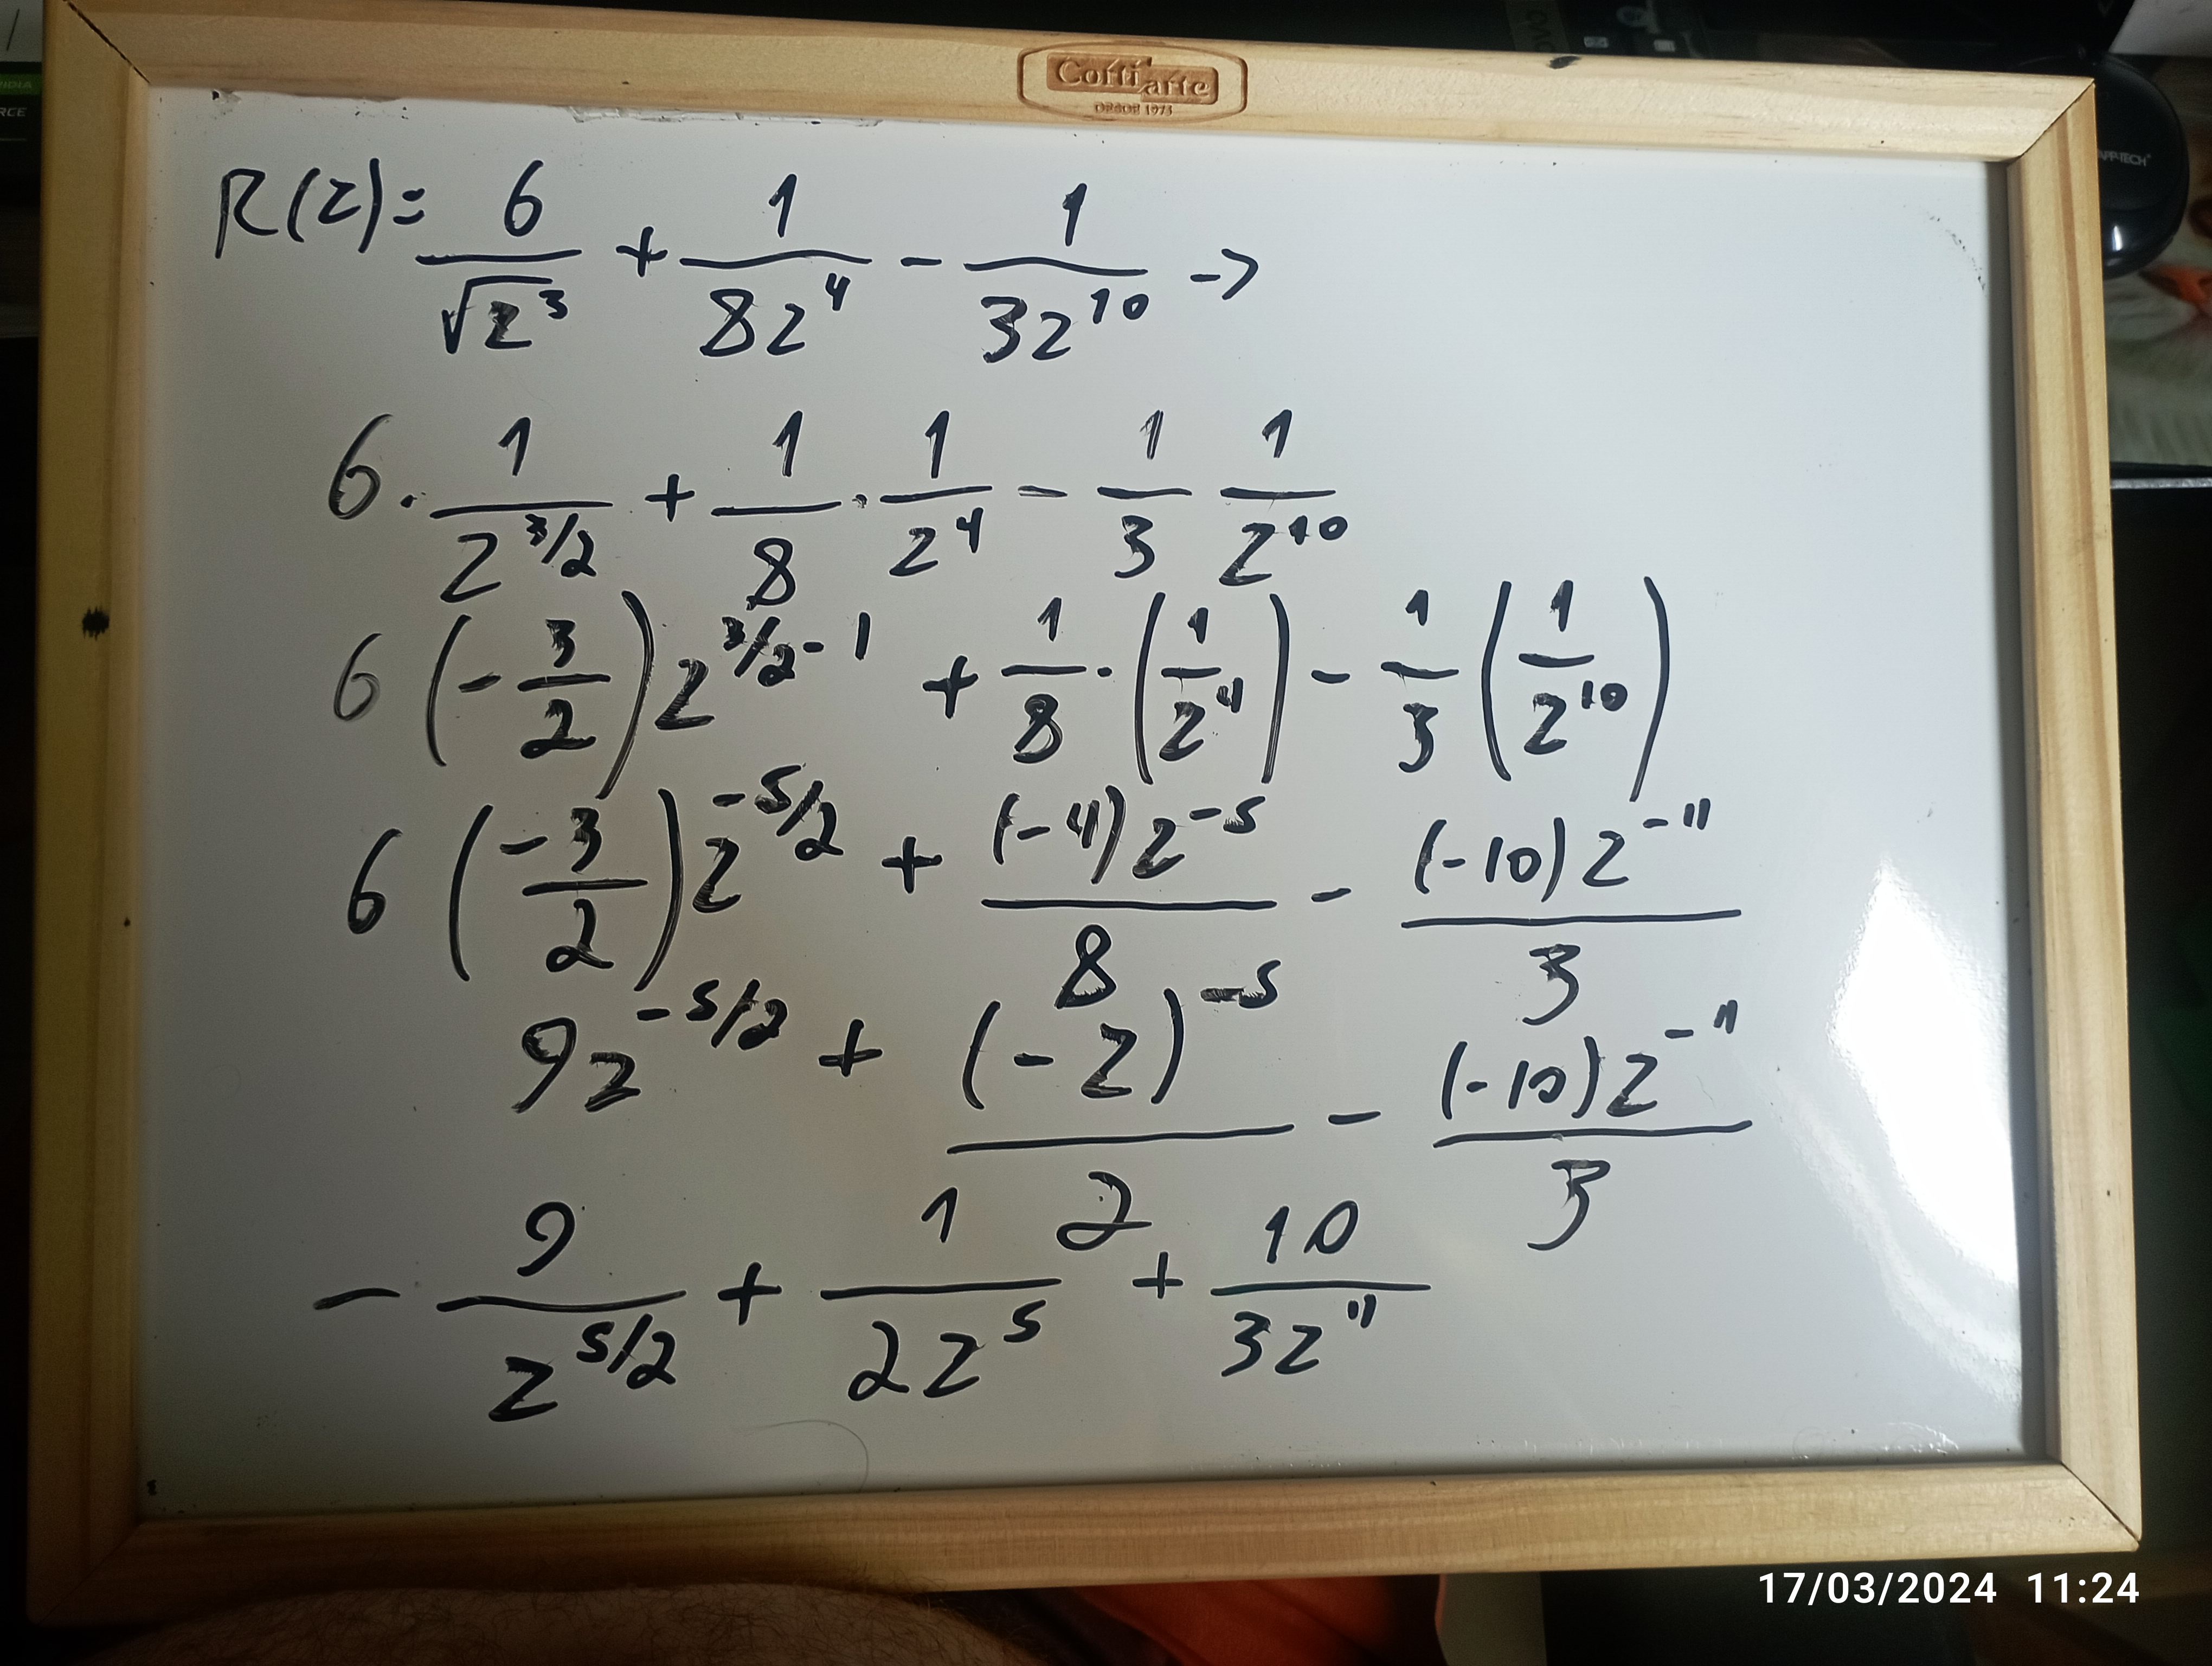 Confiarte
DESDE 1973
R(z)= 6/√z³ + 1/8z⁴ - 1/3z¹⁰ ->
6 · 1/z^(3/2) + 1/8 · 1/z⁴ - 1/3 1/z¹⁰
6 (-3/2) z^(3/2-1) + 1/8 · (1/z⁴) - 1/3 (1/z¹⁰)
6 (-3/2) z^(-5/2) + (-4)z⁻⁵/8 - (-10)z⁻¹¹/3
9z^(-5/2) + (-z)⁻⁵/2 - (-10)z⁻¹¹/3
- 9/z^(5/2) + 1/2z⁵ + 10/3z¹¹
17/03/2024 11:24